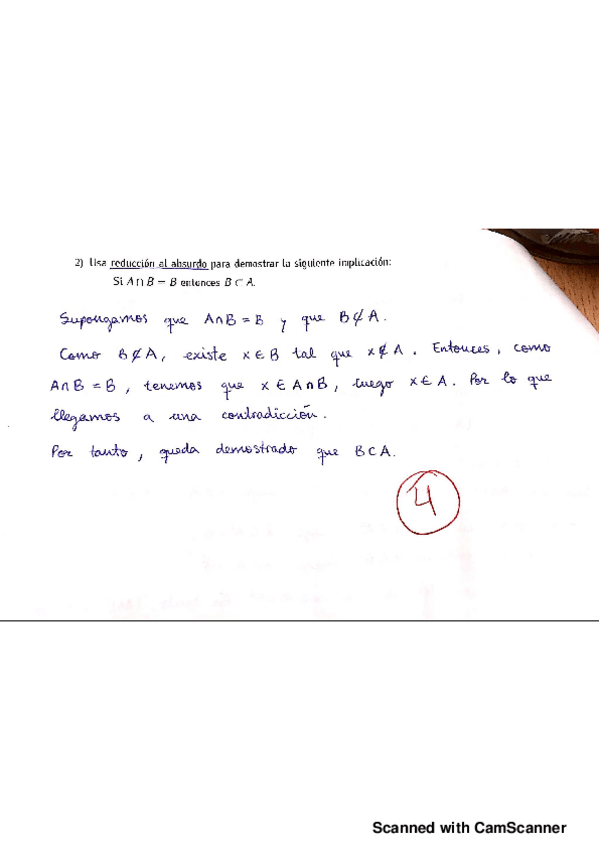 2) Usa reducción al absurdo para demostrar la siguiente implicación:
Si A ∩ B = B entonces B ⊂ A.
Supongamos que A∩B = B y que B⊄A.
Como B⊄A, existe x∈B tal que x∉A. Entonces, como
A∩B = B, tenemos que x∈A∩B, luego x∈A. Por lo que
llegamos a una contradicción.
Por tanto, queda demostrado que B⊂A.
4
Scanned with CamScanner